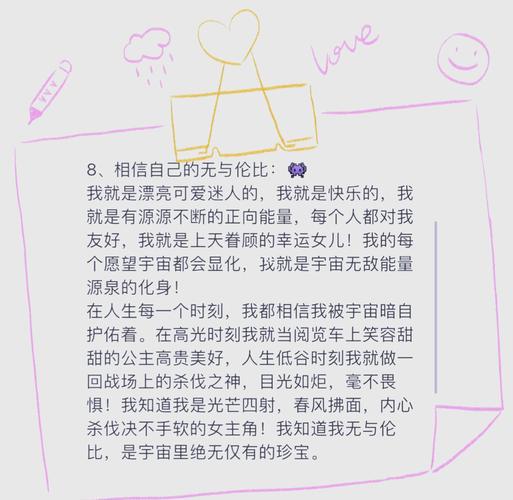 love
8、相信自己的无与伦比：👾
我就是漂亮可爱迷人的，我就是快乐的，我
就是有源源不断的正向能量，每个人都对我
友好，我就是上天眷顾的幸运女儿！我的每
个愿望宇宙都会显化，我就是宇宙无敌能量
源泉的化身！
在人生每一个时刻，我都相信我被宇宙暗自
护佑着。在高光时刻我就当阅览车上笑容甜
甜的公主高贵美好，人生低谷时刻我就做一
回战场上的杀伐之神，目光如炬，毫不畏
惧！我知道我是光芒四射，春风拂面，内心
杀伐决不手软的女主角！我知道我无与伦
比，是宇宙里绝无仅有的珍宝。